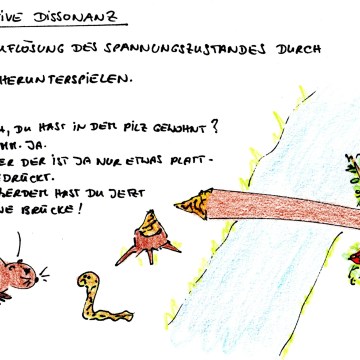 IVE DISSONANZ
UFLÖSUNG DES SPANNUNGSZUSTANDES DURCH
HERUNTERSPIELEN.
H, DU HAST IN DEM PILZ GEWOHNT?
MM. JA.
ER DER IST JA NUR ETWAS PLATT-
EDRÜCKT.
ERDEM HAST DU JETZT
NE BRÜCKE!